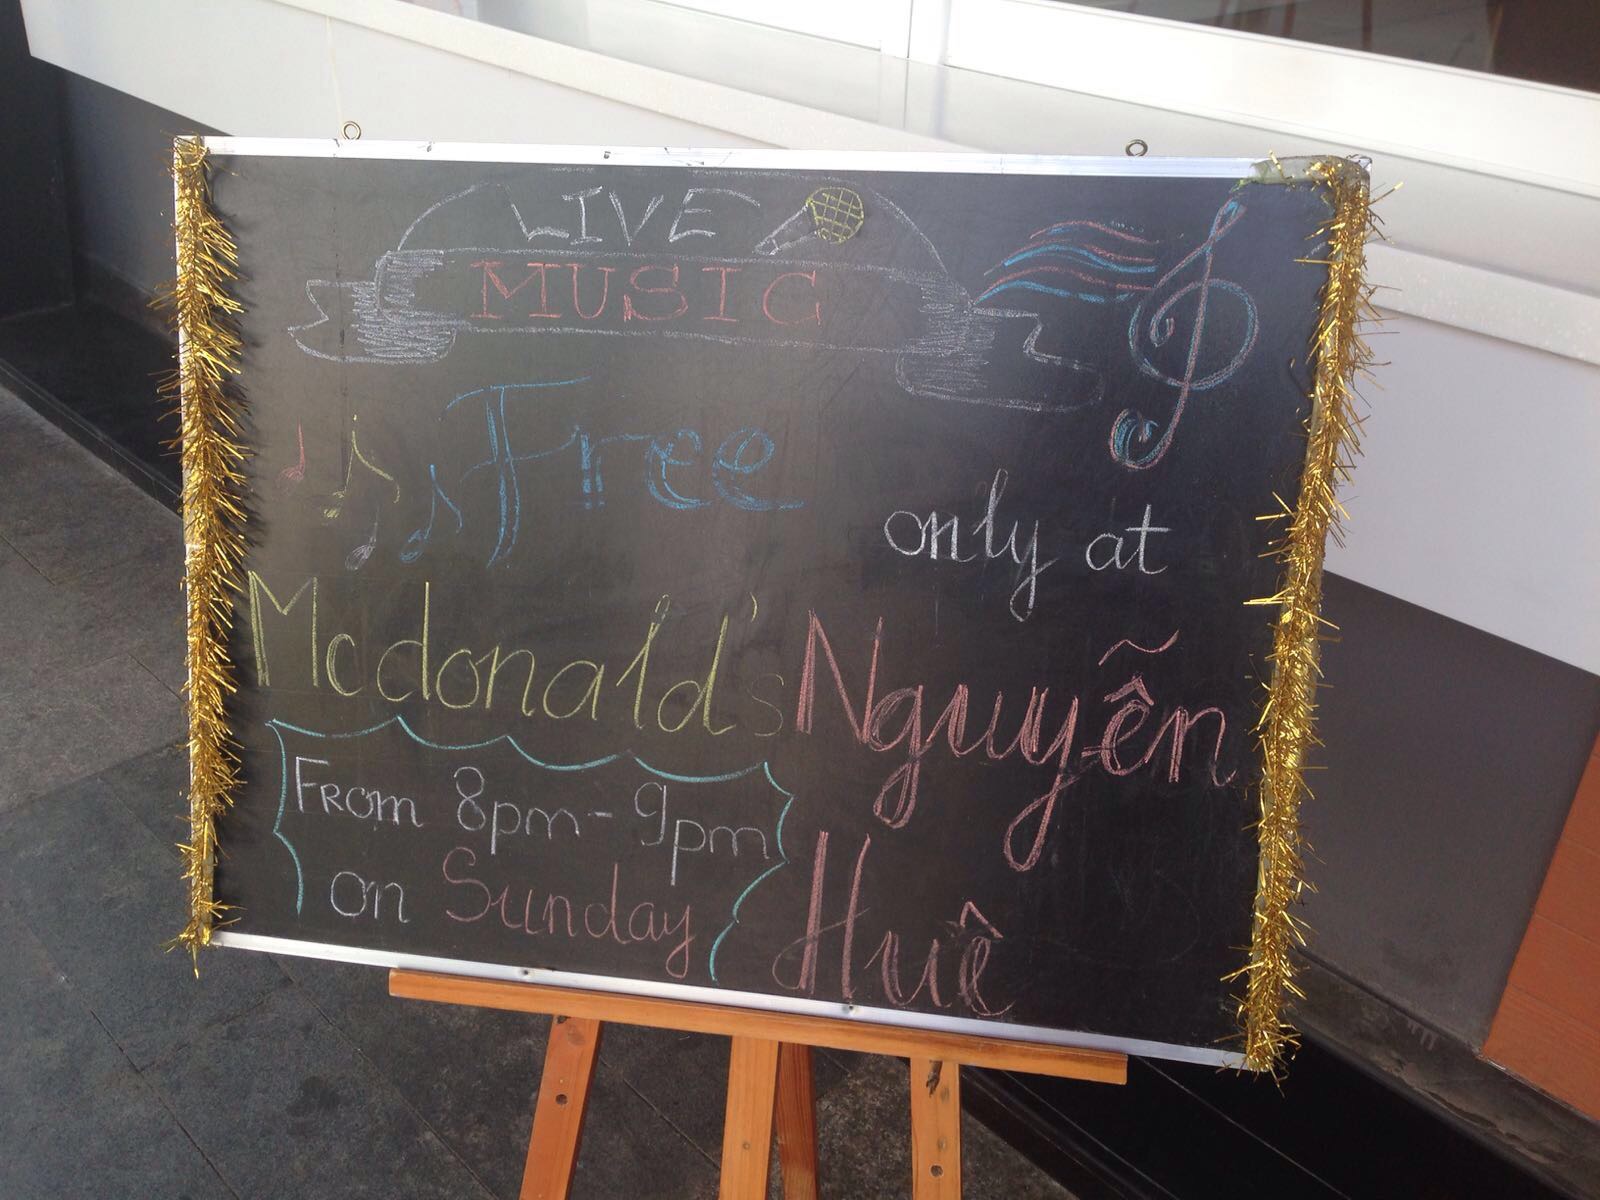 LIVE
MUSIC
Free
only at
Mcdonald's Nguyễn
Huê
From 8pm-9pm
on Sunday